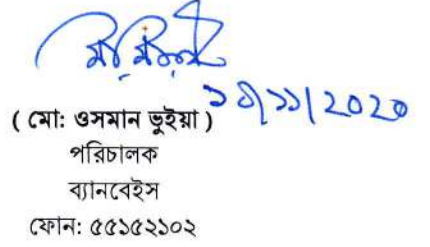 ১১/১১/2020
( মো: ওসমান ভুইয়া )
পরিচালক
ব্যানবেইস
ফোন: ৫৫১৫২১০২